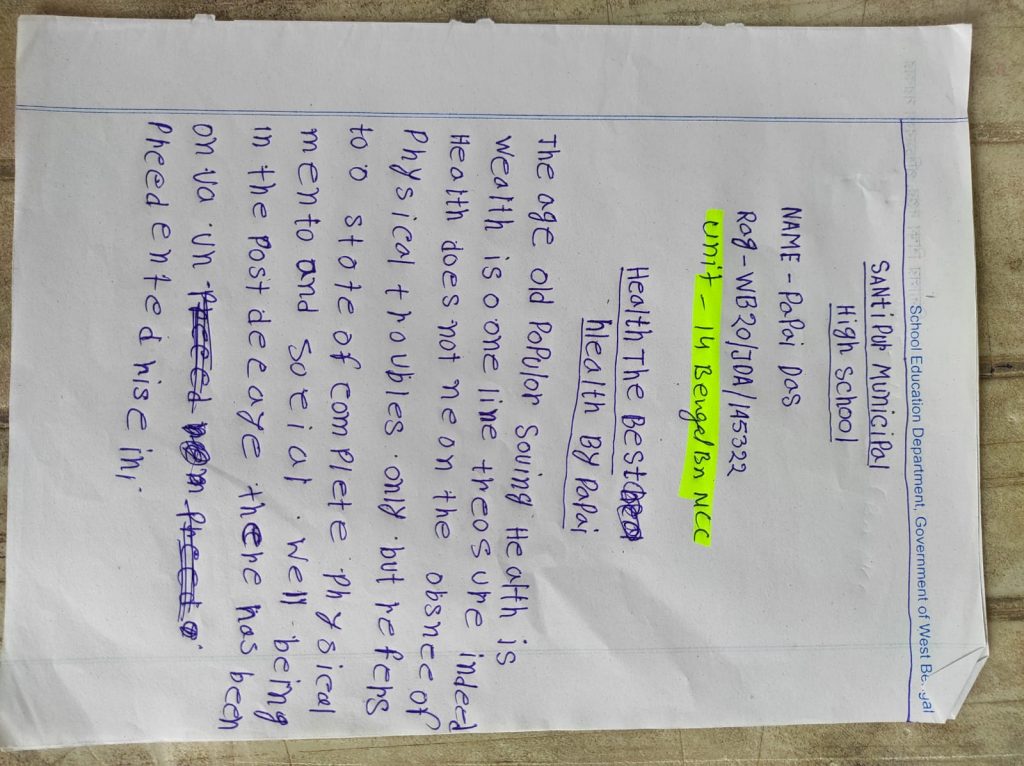 School Education Department, Government of West Be
SANTiPUR MUNiCiPal
High School
NAME - PaPai Das
Rag - WB20/JDA/145322
Unit - 14 Bengal Bn NCC
Health The Best
hlealth By Papai
The age old PoPulor Soving Health is
wealth is o one lime threosure indeed
Health does not meon the obsnee of
Physical troubles. only. but refers
to o stote of complete. Physical
mento and Soeial. well. being
in the Post deeaye there has been
on va. un-
Pheedented hise in,.